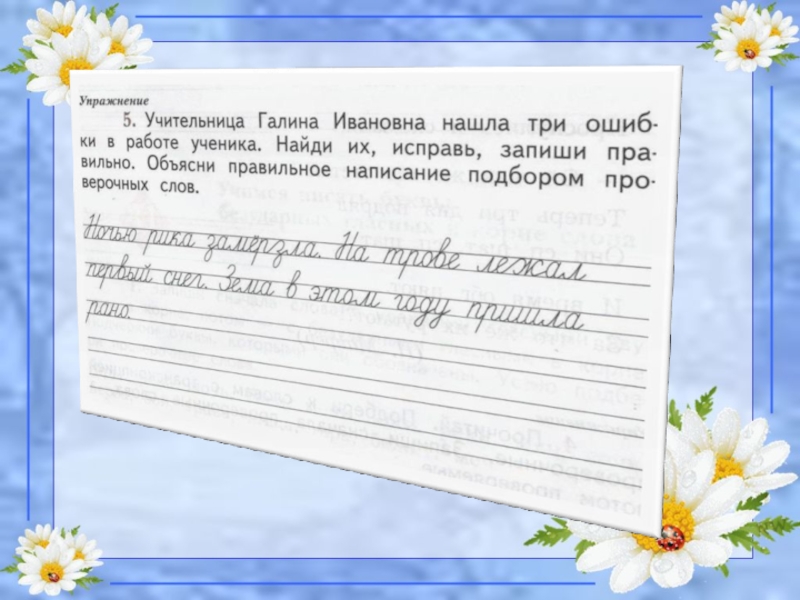 Упражнение
5. Учительница Галина Ивановна нашла три ошиб-
ки в работе ученика. Найди их, исправь, запиши пра-
вильно. Объясни правильное написание подбором про-
верочных слов.
Ночью рика замерзла. На трове лежал
первый снег. Зема в этом году пришла
рано.